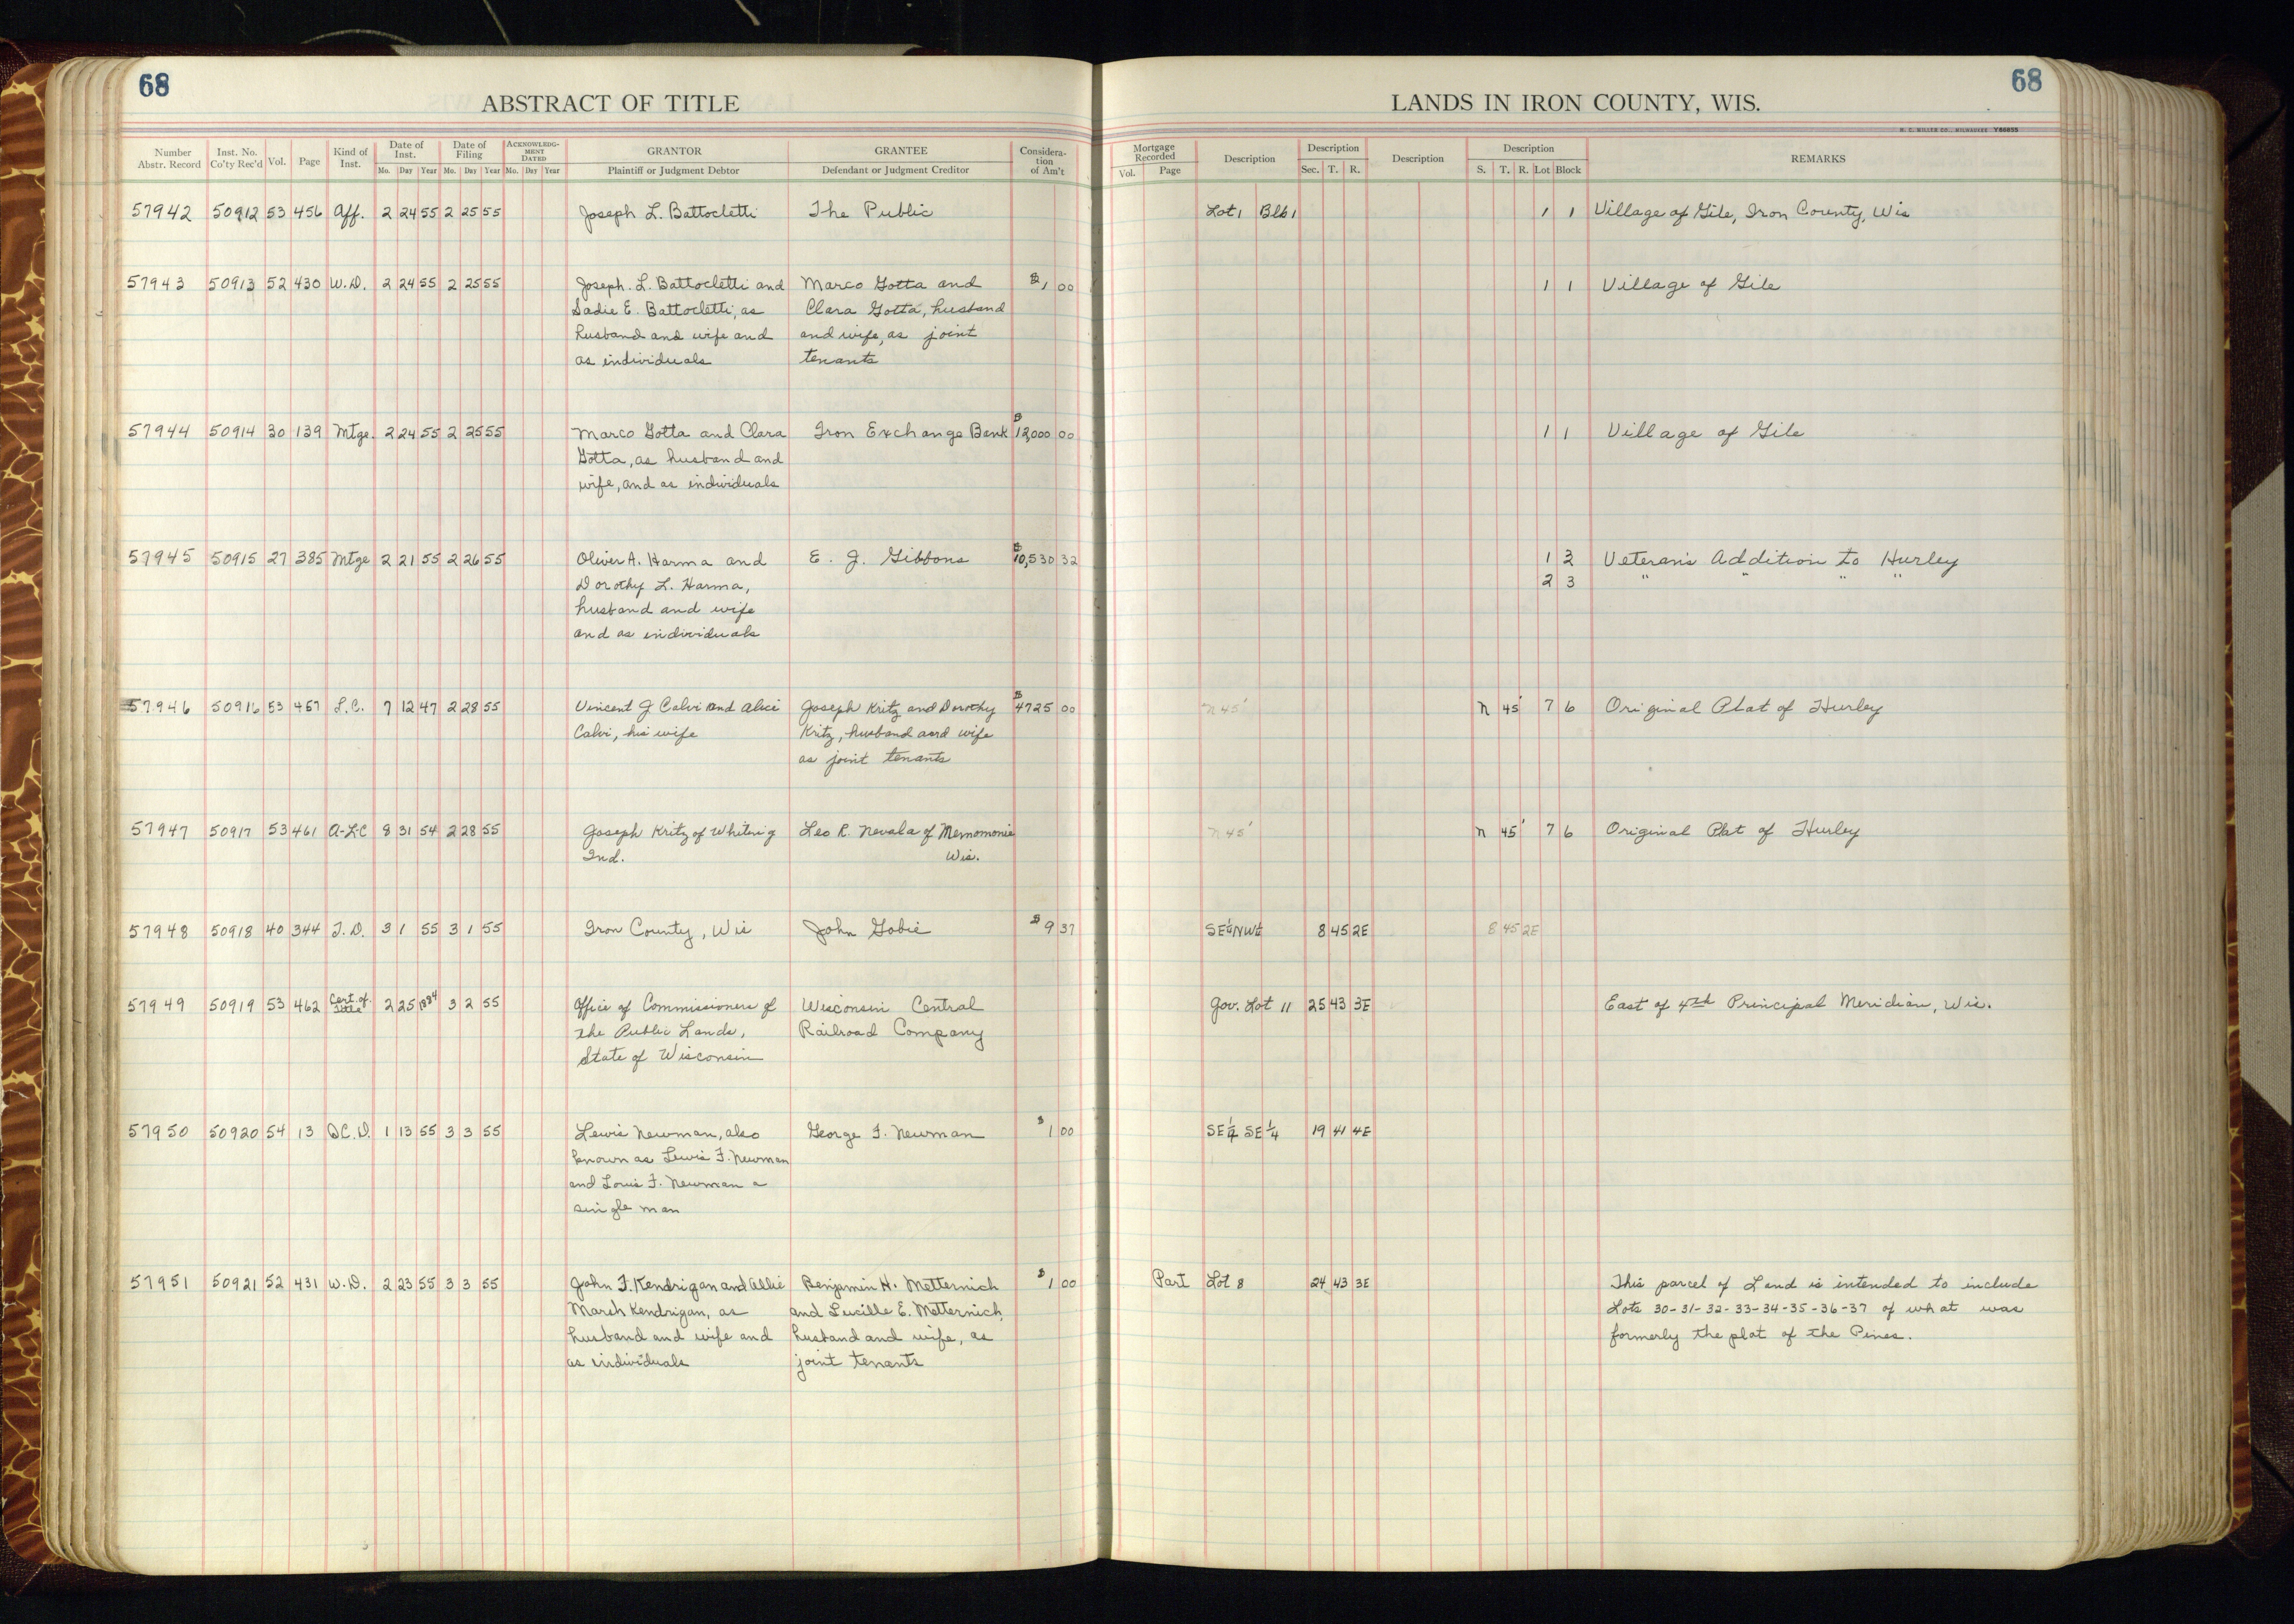 68
ABSTRACT OF TITLE
LANDS IN IRON COUNTY, WIS.
68
H. C. MILLER CO., MILWAUKEE Y66655
Number Abstr. Record Inst. No. Co'ty Rec'd Vol. Page Kind of Inst. Date of Inst. Mo. Day Year Date of Filing Mo. Day Year ACKNOWLEDGMENT DATED Mo. Day Year GRANTOR Plaintiff or Judgment Debtor GRANTEE Defendant or Judgment Creditor Consideration of Am't
Mortgage Recorded Vol. Page Description Description Sec. T. R. Description Description S. T. R. Lot Block REMARKS
57942 50912 53 456 Aff. 2 24 55 2 25 55 Joseph L. Battocletti The Public Lot 1 Blk 1 1 1 Village of Gile, Iron County, Wis
57943 50913 52 430 W.D. 2 24 55 2 25 55 Joseph. L. Battocletti and Marco Gotta and $1 00 1 1 Village of Gile
Sadie E. Battocletti, as Clara Gotta, husband
husband and wife and and wife, as joint
as individuals tenants
57944 50914 30 139 Mtge. 2 24 55 2 25 55 Marco Gotta and Clara Iron Exchange Bank $12,000 00 1 1 Village of Gile
Gotta, as husband and
wife, and as individuals
57945 50915 27 385 Mtge 2 21 55 2 26 55 Oliver A. Harma and E. J. Gibbons $10,530 32 1 3 Veteran's Addition to Hurley
Dorothy L. Harma, 2 3 " " " "
husband and wife
and as individuals
57946 50916 53 457 L.C. 7 12 47 2 28 55 Vincent J Calvi and Alice Joseph Kritz and Dorothy $4725 00 N 45' N 45' 7 6 Original Plat of Hurley
Calvi, his wife Kritz, husband and wife
as joint tenants
57947 50917 53 461 A-L-C 8 31 54 2 28 55 Joseph Kritz of Whiting Leo R. Nevala of Memomonie N 45' N 45' 7 6 Original Plat of Hurley
Ind. Wis.
57948 50918 40 344 T.D. 3 1 55 3 1 55 Iron County, Wis John Gobie $9 37 SE¼NW¼ 8 45 2E 8 45 2E
57949 50919 53 462 Cert. of Title 2 25 1884 3 2 55 Office of Commissioners of Wisconsin Central Gov. Lot 11 25 43 3E East of 4th Principal Meridian, Wis.
the Public Lands, Railroad Company
State of Wisconsin
57950 50920 54 13 Q.C.D. 1 13 55 3 3 55 Lewis Newman, also George F. Newman $1 00 SE¼ SE¼ 19 41 4E
known as Lewis F. Newman
and Louis F. Newman a
single man
57951 50921 52 431 W.D. 2 23 55 3 3 55 John F. Kendrigan and Allie Benjamin H. Metternich $1 00 Part Lot 8 24 43 3E This parcel of Land is intended to include
March Kendrigan, as and Lucille E. Metternich, Lots 30-31-32-33-34-35-36-37 of what was
husband and wife and husband and wife, as formerly the plat of the Pines.
as individuals joint tenants